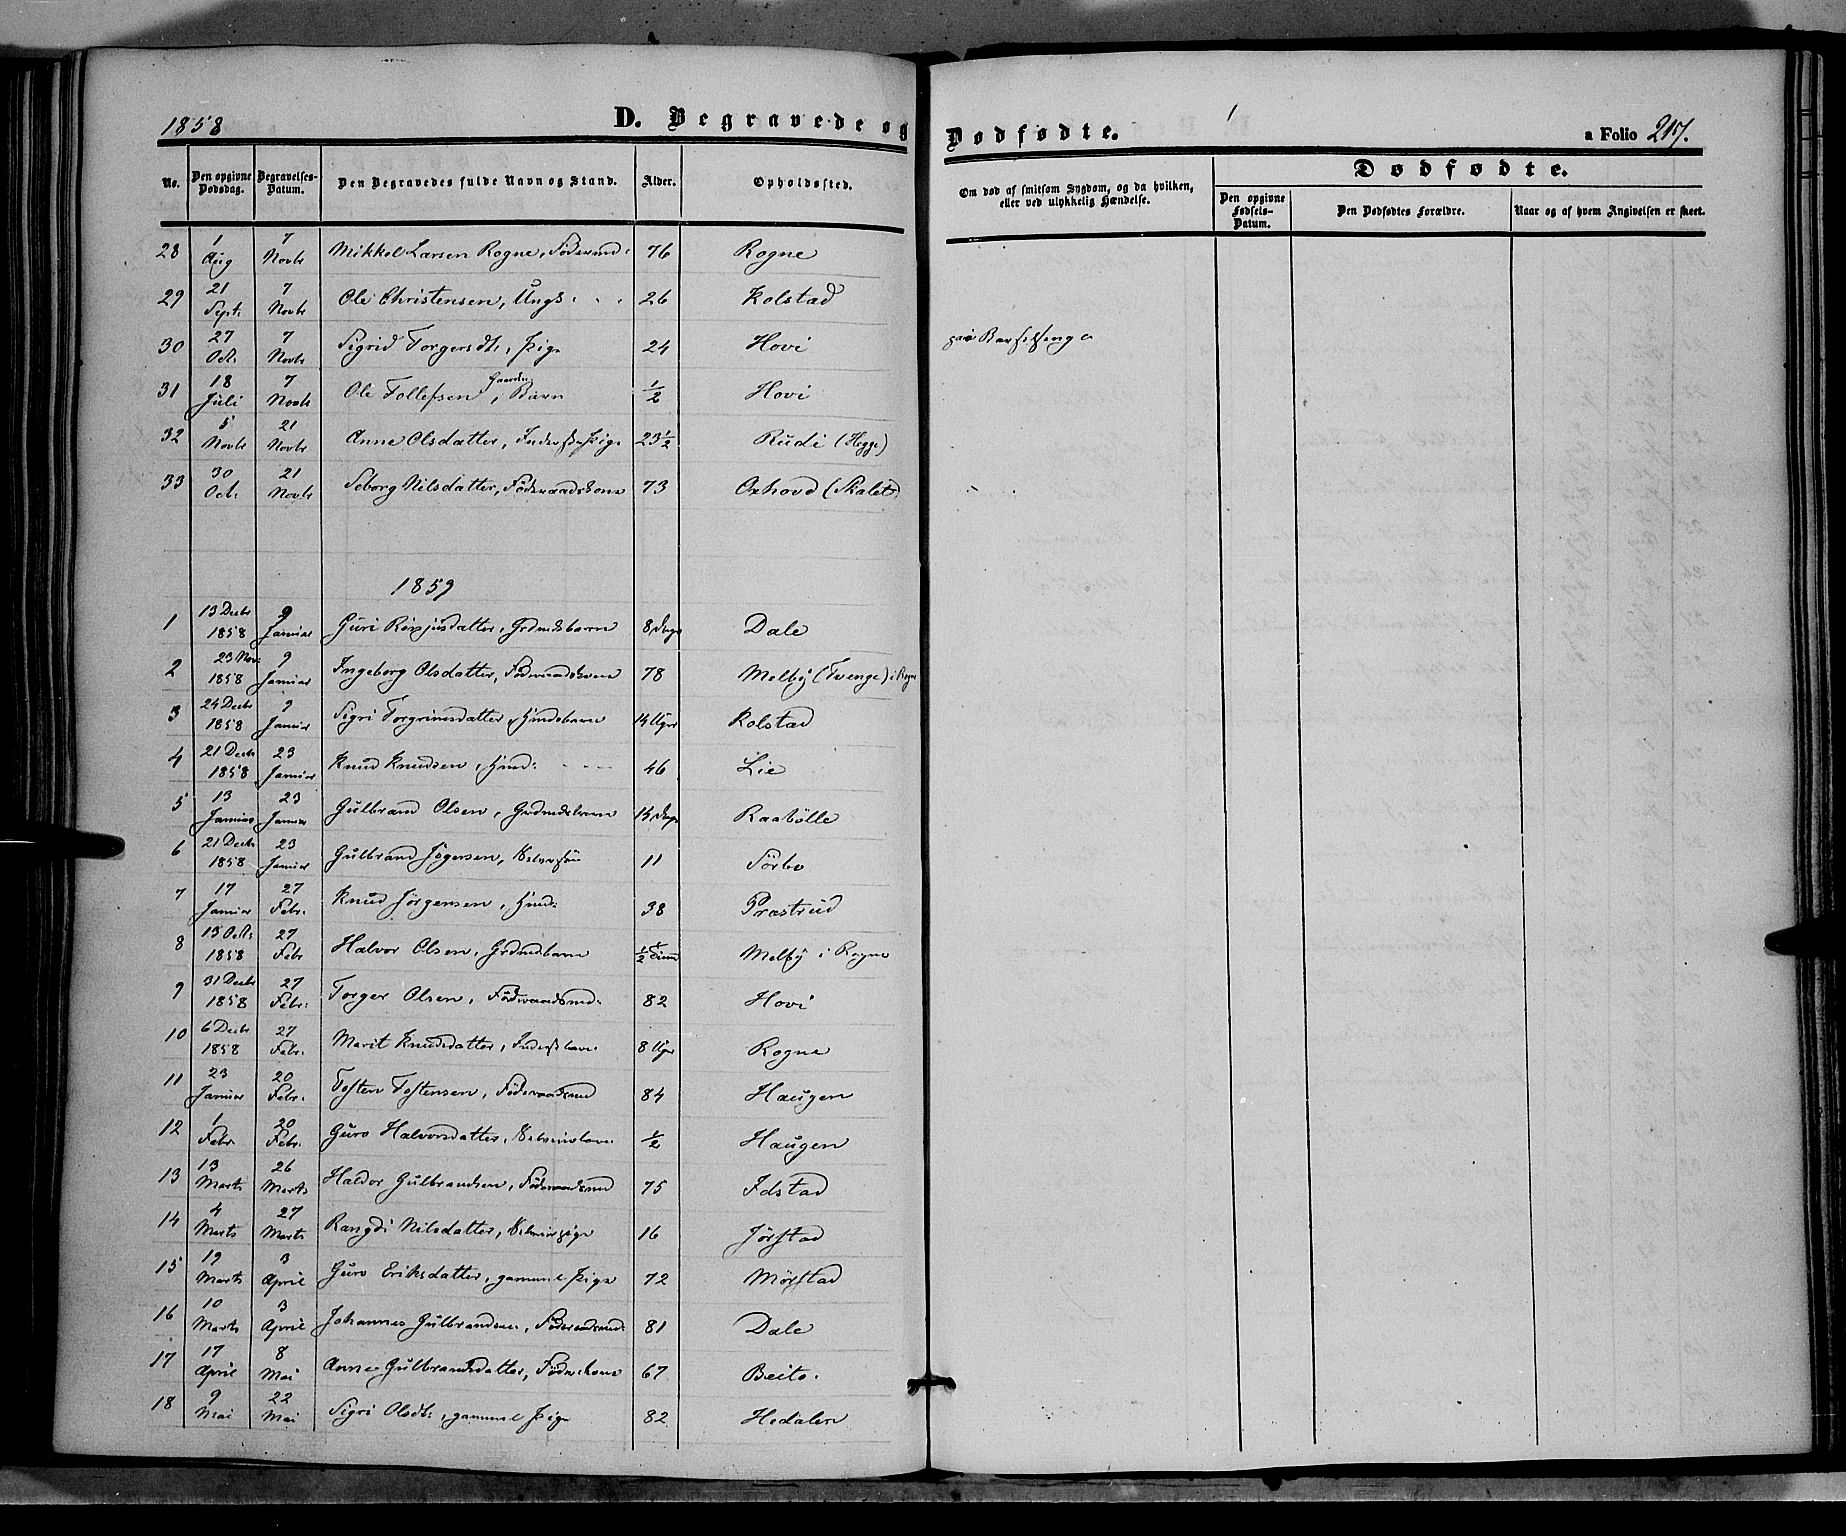 1858
D. Begravede og Dødfødte.
a Folio 217.
No. Den opgivne Dødsdag. Begravelses-Datum. Den Begravedes fulde Navn og Stand. Alder. Opholdssted.
Om død af smitsom Sygdom, og da hvilken, eller ved ulykkelig Hændelse.
Dødfødte.
Den opgivne Fødsels-Datum. Den Dødfødtes Forældre. Naar og af hvem Angivelsen er skeet.
28 1 Aug 7 Novbr Mikkel Larsen Rogne, 76 Rogne
29 21 Sept. 7 Novbr Ole Christensen, Ungk. 26 Kolstad
30 27 Oct. 7 Novbr Sigrid Torgersdt., Pige 24 Hovi paa Barselseng
31 18 Juli 7 Novbr Ole Tollefsen, Gaardm. Barn 1/2 Hovi
32 5 Novbr 21 Novbr Anne Olsdatter, Inderstpige 23 1/2 Rudi (Hegge)
33 30 Oct. 21 Novbr Seborg Nilsdatter, Føderaadskone 73 Oxhovd (Skalet)
1859
1 13 Decbr 1858 9 Januar Guri Dale 8 Dage
2 23 Nov. 1858 9 Januar Ingeborg Olsdatter, Føderaadskone 78 Melby (Tvenge) i Rogne
3 24 Decbr 1858 9 Januar Sigri Torgrimsdatter, Gmdsbarn 14 Uger Kolstad
4 21 Decbr 1858 23 Januar Knud Knudsen, Gmd. 46 Lie
5 13 Januar 23 Januar Gulbrand Olsen, Grdmdsbarn 14 Dage Raabølle
6 21 Decbr 1858 23 Januar Gulbrand 11 Sørbo
7 17 Januar 27 Febr. Knud Jørgensen, Gmd. 38 Præstrud
8 13 Octb 1858 27 Febr Halvor Olsen, Grdmdsbarn 1/2 Time Melby i Rogne
9 31 Decbr 1858 27 Febr. Torger Olsen, Føderaadsmd. 82 Hovi
10 6 Decbr 1858 27 Febr. Marit Knudsdatter, Inderstbarn 8 Uger Rogne
11 23 Januar 20 Febr. Tosten Tostensen, Føderaadsmd 84 Haugen
12 1 Febr. 20 Febr. Guro Halvorsdatter, 1/2 Haugen
13 13 Marts 26 Marts Haldor Gulbrandsen, Føderaadsmd 75 Idstad
14 4 Marts 27 Marts Rangdi Nilsdatter, 16 Jørstad
15 19 Marts 3 April Guro Eriksdatter, gammel Pige 72 Mørstad
16 10 Marts 3 April Johannes Gulbrandsen, Føderaadsmd. 81 Dale
17 17 April 8 Mai Anne Gulbrandsdatter, Føder.kone 67 Beito.
18 9 Mai 22 Mai Sigri Olsdt., gammel Pige 82 Hedalen